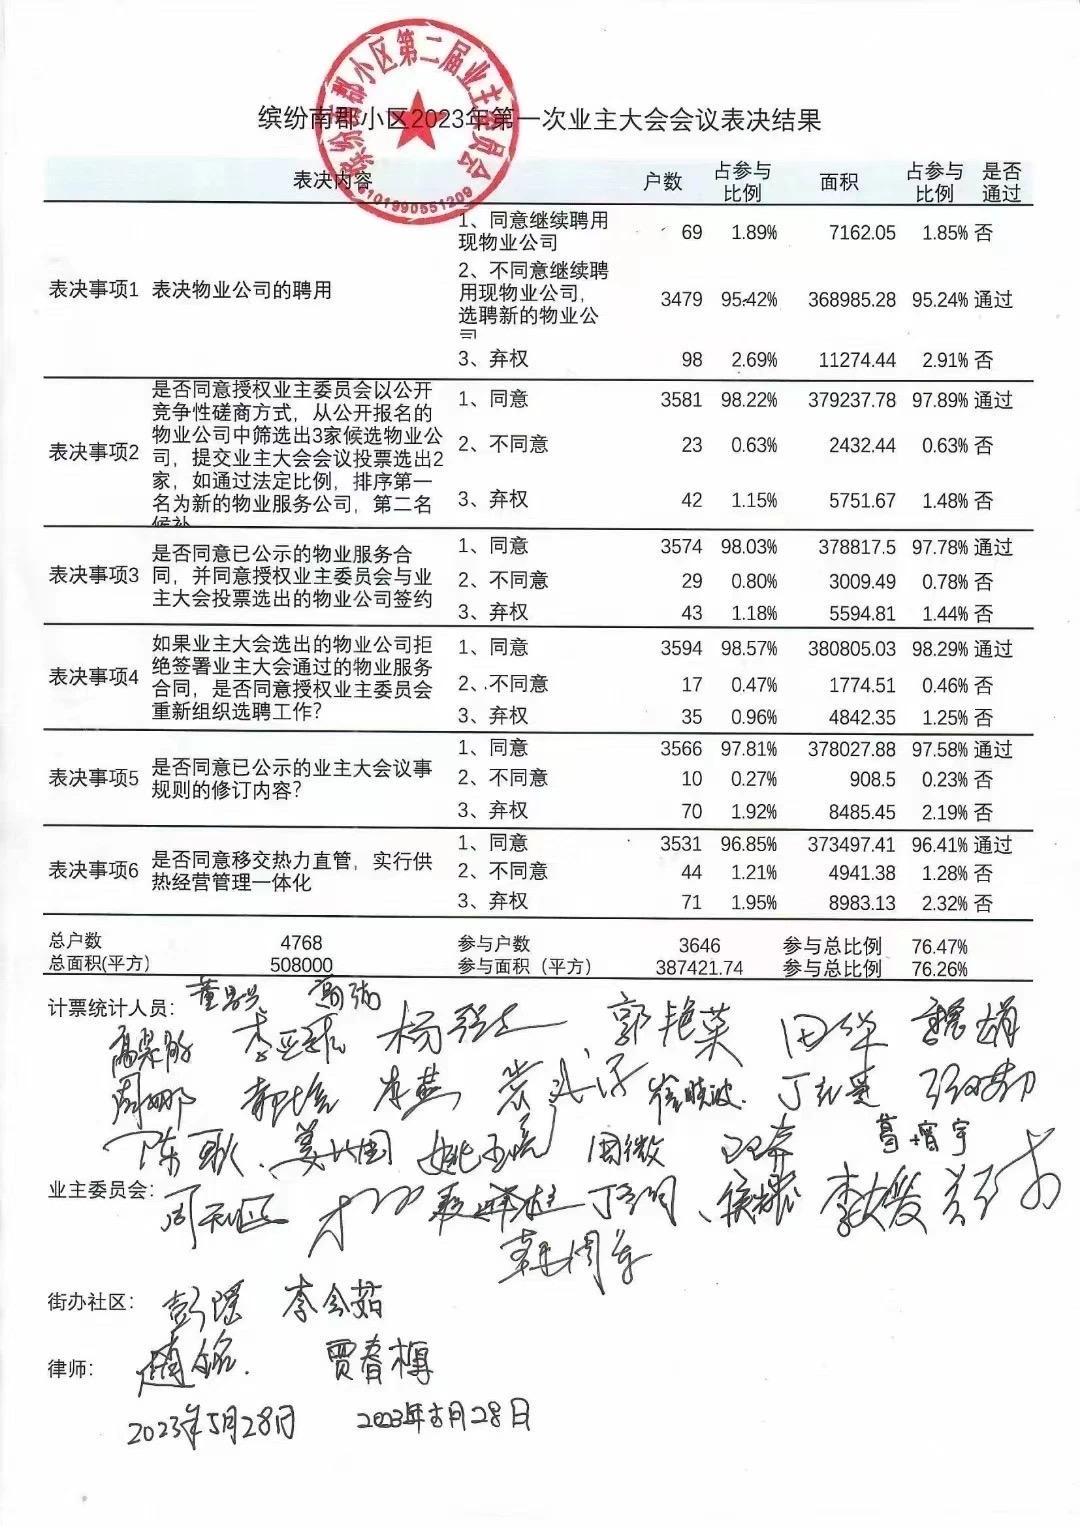 缤纷南郡小区第二届业主委员会
6101990551209
缤纷南郡小区2023年第一次业主大会会议表决结果
表决内容 户数 占参与比例 面积 占参与比例 是否通过
表决事项1 表决物业公司的聘用
1、同意继续聘用现物业公司 69 1.89% 7162.05 1.85% 否
2、不同意继续聘用现物业公司，选聘新的物业公司 3479 95.42% 368985.28 95.24% 通过
3、弃权 98 2.69% 11274.44 2.91% 否
表决事项2 是否同意授权业主委员会以公开竞争性磋商方式，从公开报名的物业公司中筛选出3家候选物业公司，提交业主大会会议投票选出2家，如通过法定比例，排序第一名为新的物业服务公司，第二名候补
1、同意 3581 98.22% 379237.78 97.89% 通过
2、不同意 23 0.63% 2432.44 0.63% 否
3、弃权 42 1.15% 5751.67 1.48% 否
表决事项3 是否同意已公示的物业服务合同，并同意授权业主委员会与业主大会投票选出的物业公司签约
1、同意 3574 98.03% 378817.5 97.78% 通过
2、不同意 29 0.80% 3009.49 0.78% 否
3、弃权 43 1.18% 5594.81 1.44% 否
表决事项4 如果业主大会选出的物业公司拒绝签署业主大会通过的物业服务合同，是否同意授权业主委员会重新组织选聘工作？
1、同意 3594 98.57% 380805.03 98.29% 通过
2、不同意 17 0.47% 1774.51 0.46% 否
3、弃权 35 0.96% 4842.35 1.25% 否
表决事项5 是否同意已公示的业主大会议事规则的修订内容？
1、同意 3566 97.81% 378027.88 97.58% 通过
2、不同意 10 0.27% 908.5 0.23% 否
3、弃权 70 1.92% 8485.45 2.19% 否
表决事项6 是否同意移交热力直管，实行供热经营管理一体化
1、同意 3531 96.85% 373497.41 96.41% 通过
2、不同意 44 1.21% 4941.38 1.28% 否
3、弃权 71 1.95% 8983.13 2.32% 否
总户数 4768 参与户数 3646 参与总比例 76.47%
总面积(平方) 508000 参与面积（平方） 387421.74 参与总比例 76.26%
计票统计人员：
郭艳英 田华
李燕 崔晓波
周微
业主委员会：
街办社区： 彭瑶 李会茹
律师： 贾春樽
2023年5月28日 2023年5月28日